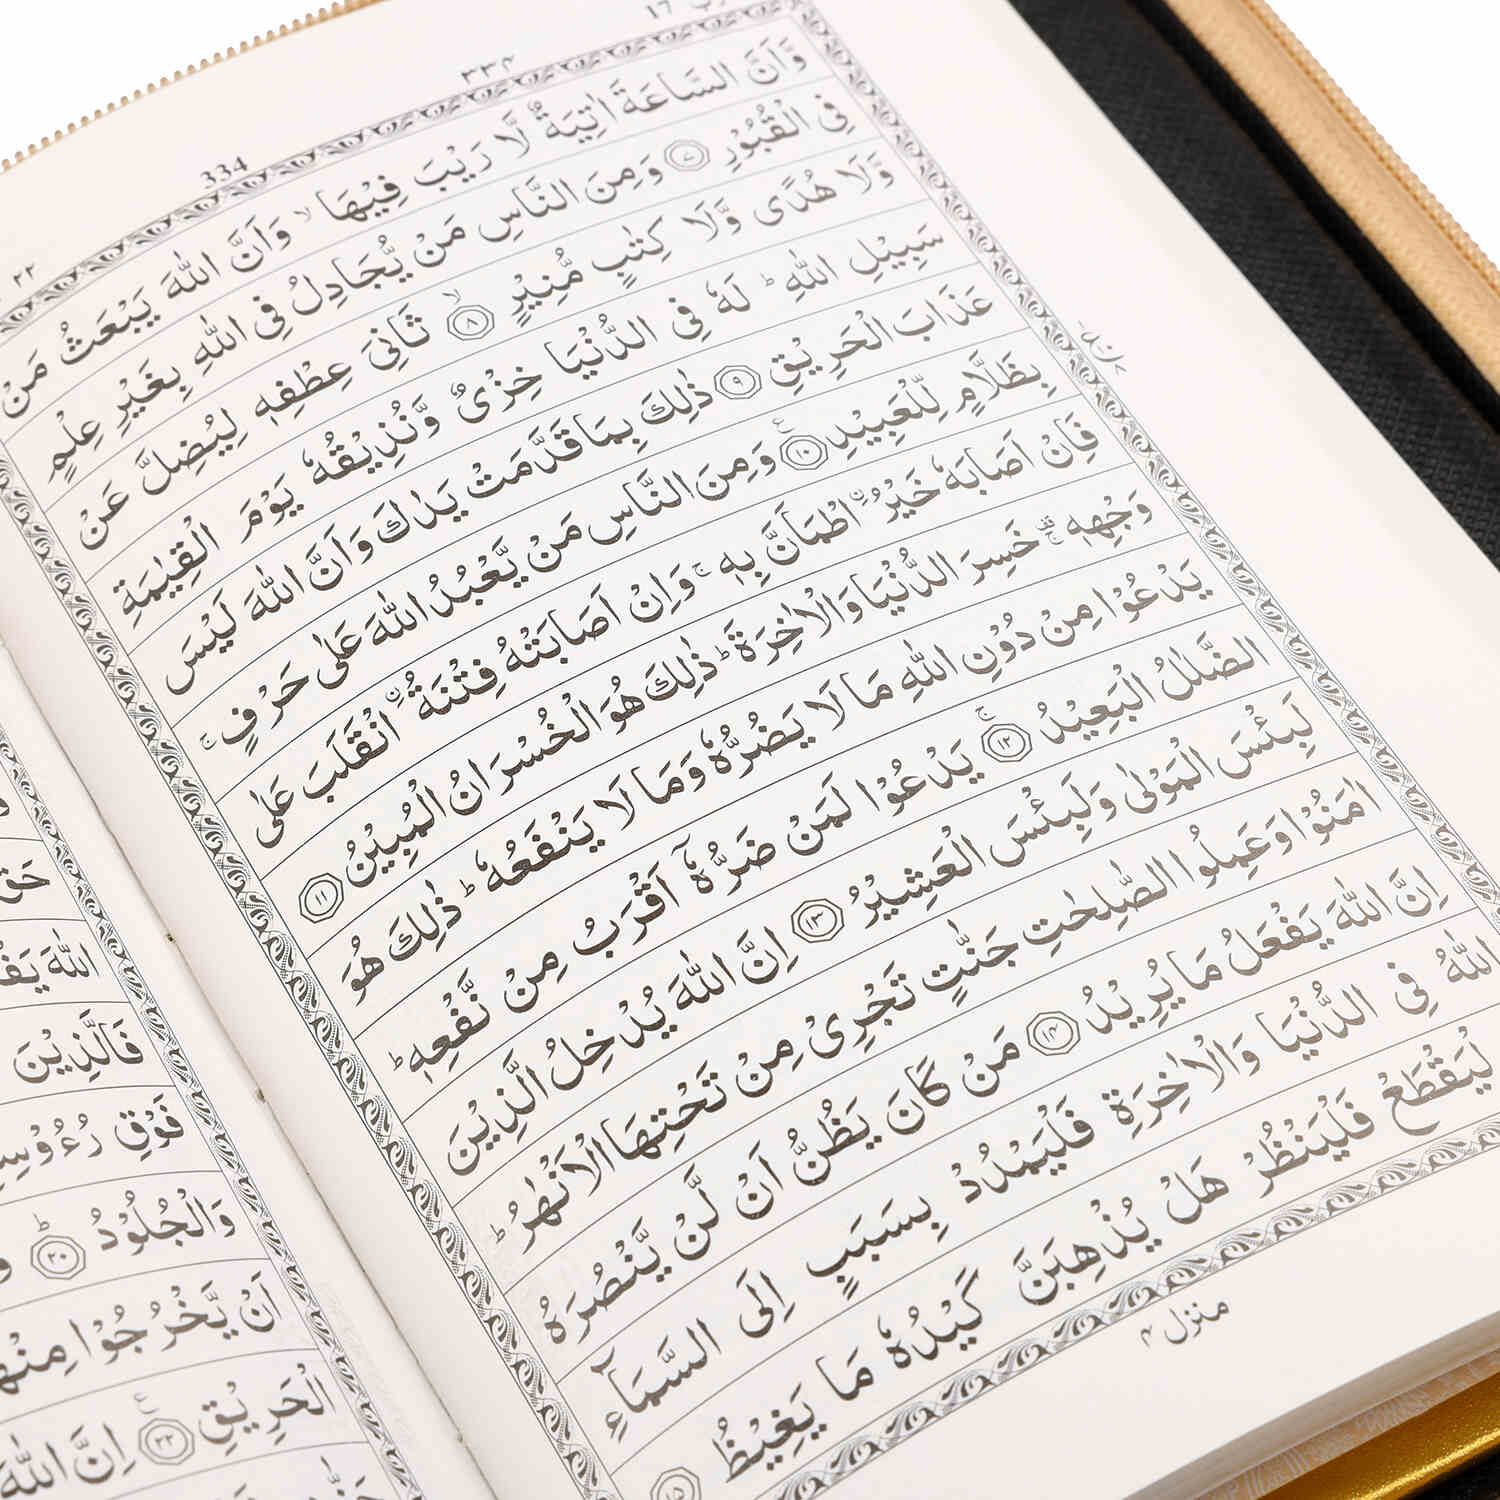 334
٣٣٤
17
وَّاَنَّ السَّاعَةَ اٰتِيَةٌ لَّا رَيْبَ فِيْهَا ۙ وَاَنَّ اللّٰهَ يَبْعَثُ مَنْ
فِى الْقُبُوْرِ ۷ وَمِنَ النَّاسِ مَنْ يُّجَادِلُ فِى اللّٰهِ بِغَيْرِ عِلْمٍ
وَّلَا هُدًى وَّلَا كِتٰبٍ مُّنِيْرٍ ۙ ۸ ثَانِىَ عِطْفِهٖ لِيُضِلَّ عَنْ
سَبِيْلِ اللّٰهِ ؕ لَهٗ فِى الدُّنْيَا خِزْىٌ وَّنُذِيْقُهٗ يَوْمَ الْقِيٰمَةِ
عَذَابَ الْحَرِيْقِ ۹ ذٰلِكَ بِمَا قَدَّمَتْ يَدٰكَ وَاَنَّ اللّٰهَ لَيْسَ
بِظَلَّامٍ لِّلْعَبِيْدِ ۱۰ ع وَمِنَ النَّاسِ مَنْ يَّعْبُدُ اللّٰهَ عَلٰى حَرْفٍ ۚ
فَاِنْ اَصَابَهٗ خَيْرُ ۨاطْمَاَنَّ بِهٖ ۚ وَاِنْ اَصَابَتْهُ فِتْنَةُ ۨانْقَلَبَ عَلٰى
وَجْهِهٖ ۚ خَسِرَ الدُّنْيَا وَالْاٰخِرَةَ ؕ ذٰلِكَ هُوَ الْخُسْرَانُ الْمُبِيْنُ ۱۱
يَدْعُوْا مِنْ دُوْنِ اللّٰهِ مَا لَا يَضُرُّهٗ وَمَا لَا يَنْفَعُهٗ ؕ ذٰلِكَ هُوَ
الضَّلٰلُ الْبَعِيْدُ ۚ ۱۲ يَدْعُوْا لَمَنْ ضَرُّهٗۤ اَقْرَبُ مِنْ نَّفْعِهٖ ؕ
لَبِئْسَ الْمَوْلٰى وَلَبِئْسَ الْعَشِيْرُ ۱۳ اِنَّ اللّٰهَ يُدْخِلُ الَّذِيْنَ
اٰمَنُوْا وَعَمِلُوا الصّٰلِحٰتِ جَنّٰتٍ تَجْرِىْ مِنْ تَحْتِهَا الْاَنْهٰرُ ؕ
اِنَّ اللّٰهَ يَفْعَلُ مَا يُرِيْدُ ۱۴ مَنْ كَانَ يَظُنُّ اَنْ لَّنْ يَّنْصُرَهُ
اللّٰهُ فِى الدُّنْيَا وَالْاٰخِرَةِ فَلْيَمْدُدْ بِسَبَبٍ اِلَى السَّمَآءِ
لْيَقْطَعْ فَلْيَنْظُرْ هَلْ يُذْهِبَنَّ كَيْدُهٗ مَا يَغِيْظُ ۱۵
منزل ۴
اللّٰهَ
فَالَّذِيْنَ
فَوْقِ
وَالْجُلُوْدُ ؕ ۲۰
اَنْ يَّخْرُجُوْا
الْحَرِيْقِ ۲۲ ع اِنَّ اللّٰهَ